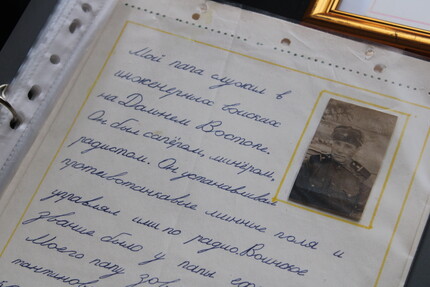 Мой папа служил в
инженерных войсках
на Дальнем Востоке.
Он был сапёром, минёром,
радистом. Он устанавливал
противотанковые минные поля и
управлял ими по радио. Воинское
звание было у папы
Моего папу